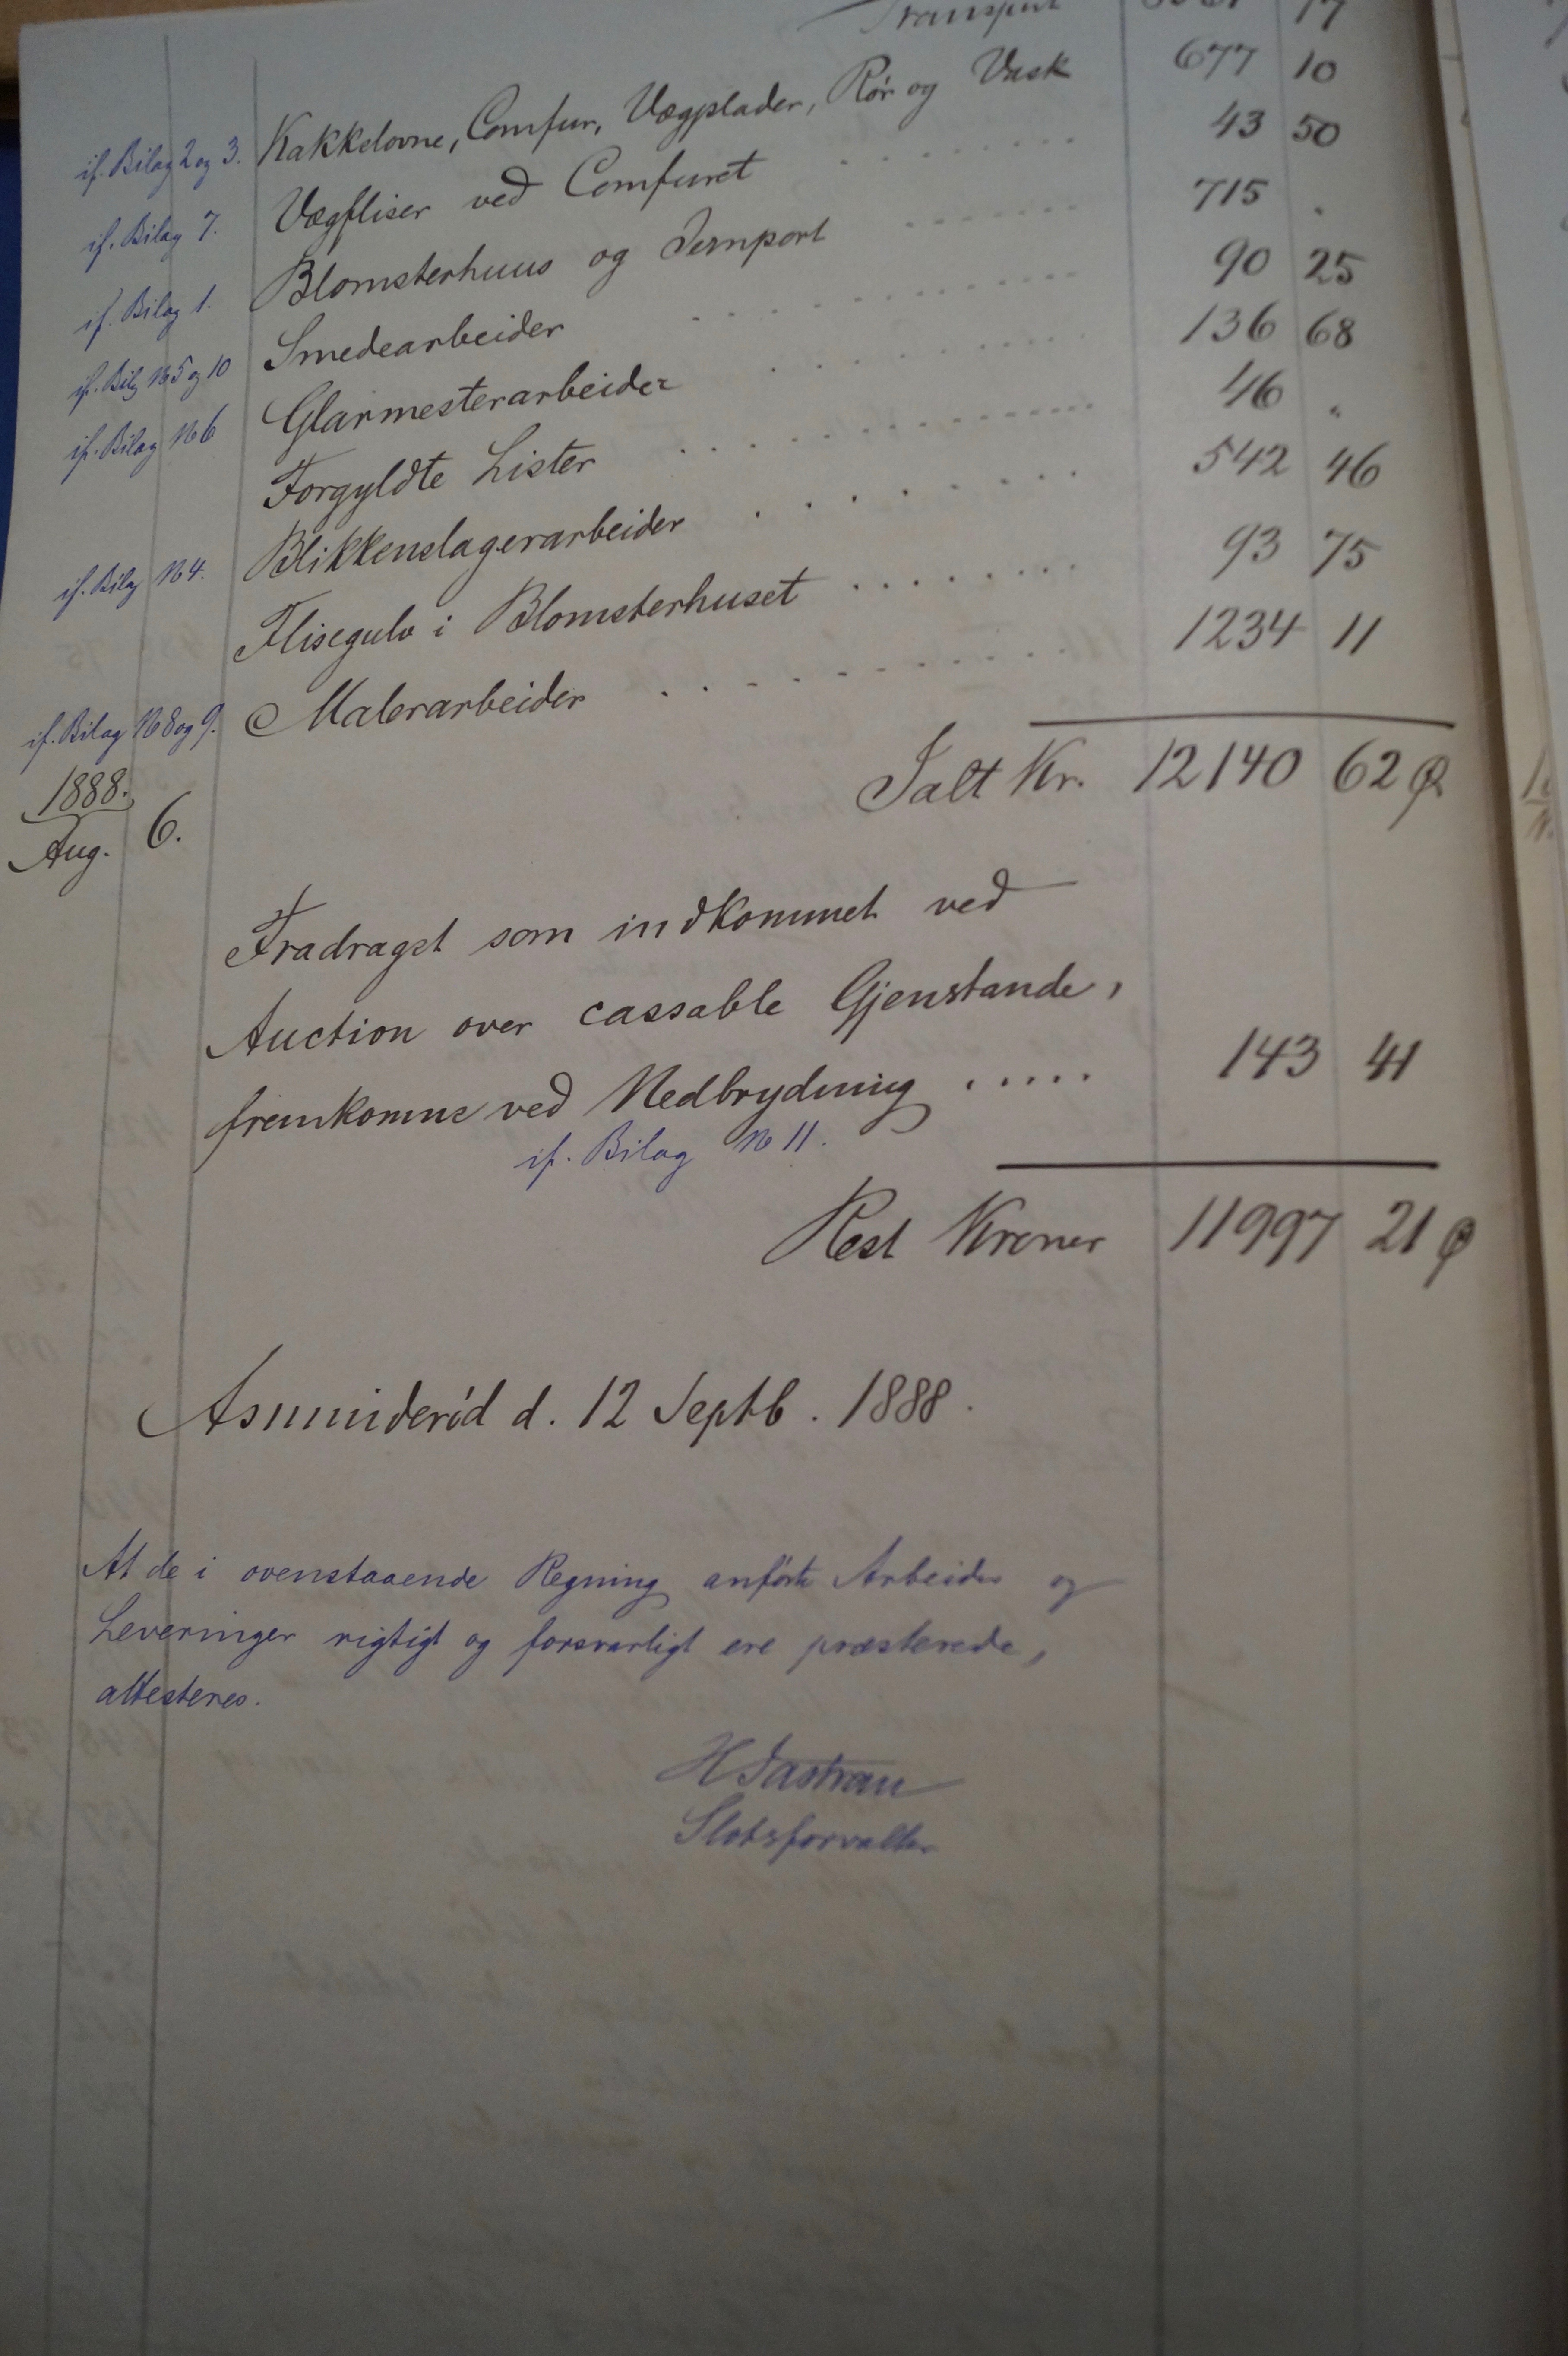 Transport 17
if. Bilag 2 og 3. Kakkelovne, Comfur, Vægplader, Rør og Vask 677 10
if. Bilag 7. Vægfliser ved Comfuret . . . . . . . . 43 50
if. Bilag 1. Blomsterhuus og Jernport . . . . . . . 715 "
if. Bilg № 5 og 10 Smedearbeider . . . . . . . . . . 90 25
if. Bilag № 6 Glarmesterarbeider . . . . . . . . 136 68
Forgyldte Lister . . . . . . . . . . . 46 "
if. Bilag № 4. Blikkenslagerarbeider . . . . . . . . 542 46
Flisegulv i Blomsterhuset . . . . . . . . 93 75
if. Bilag № 8 og 9. Malerarbeider . . . . . . . . . . 1234 11
Ialt Kr. 12140 62 Ø
1888.
Aug. 6.
Fradraget som indkommet ved
Auction over cassable Gjenstande,
fremkomne ved Nedbrydning . . . . . 143 41
if. Bilag № 11.
Rest Kroner 11997 21 Ø
Asminderød d. 12 Septb. 1888.
At de i ovenstaaende Regning anførte Arbeider og
Leveringer rigtigt og forsvarligt ere præsterede,
attesteres.
H Jastrau
Slotsforvalter